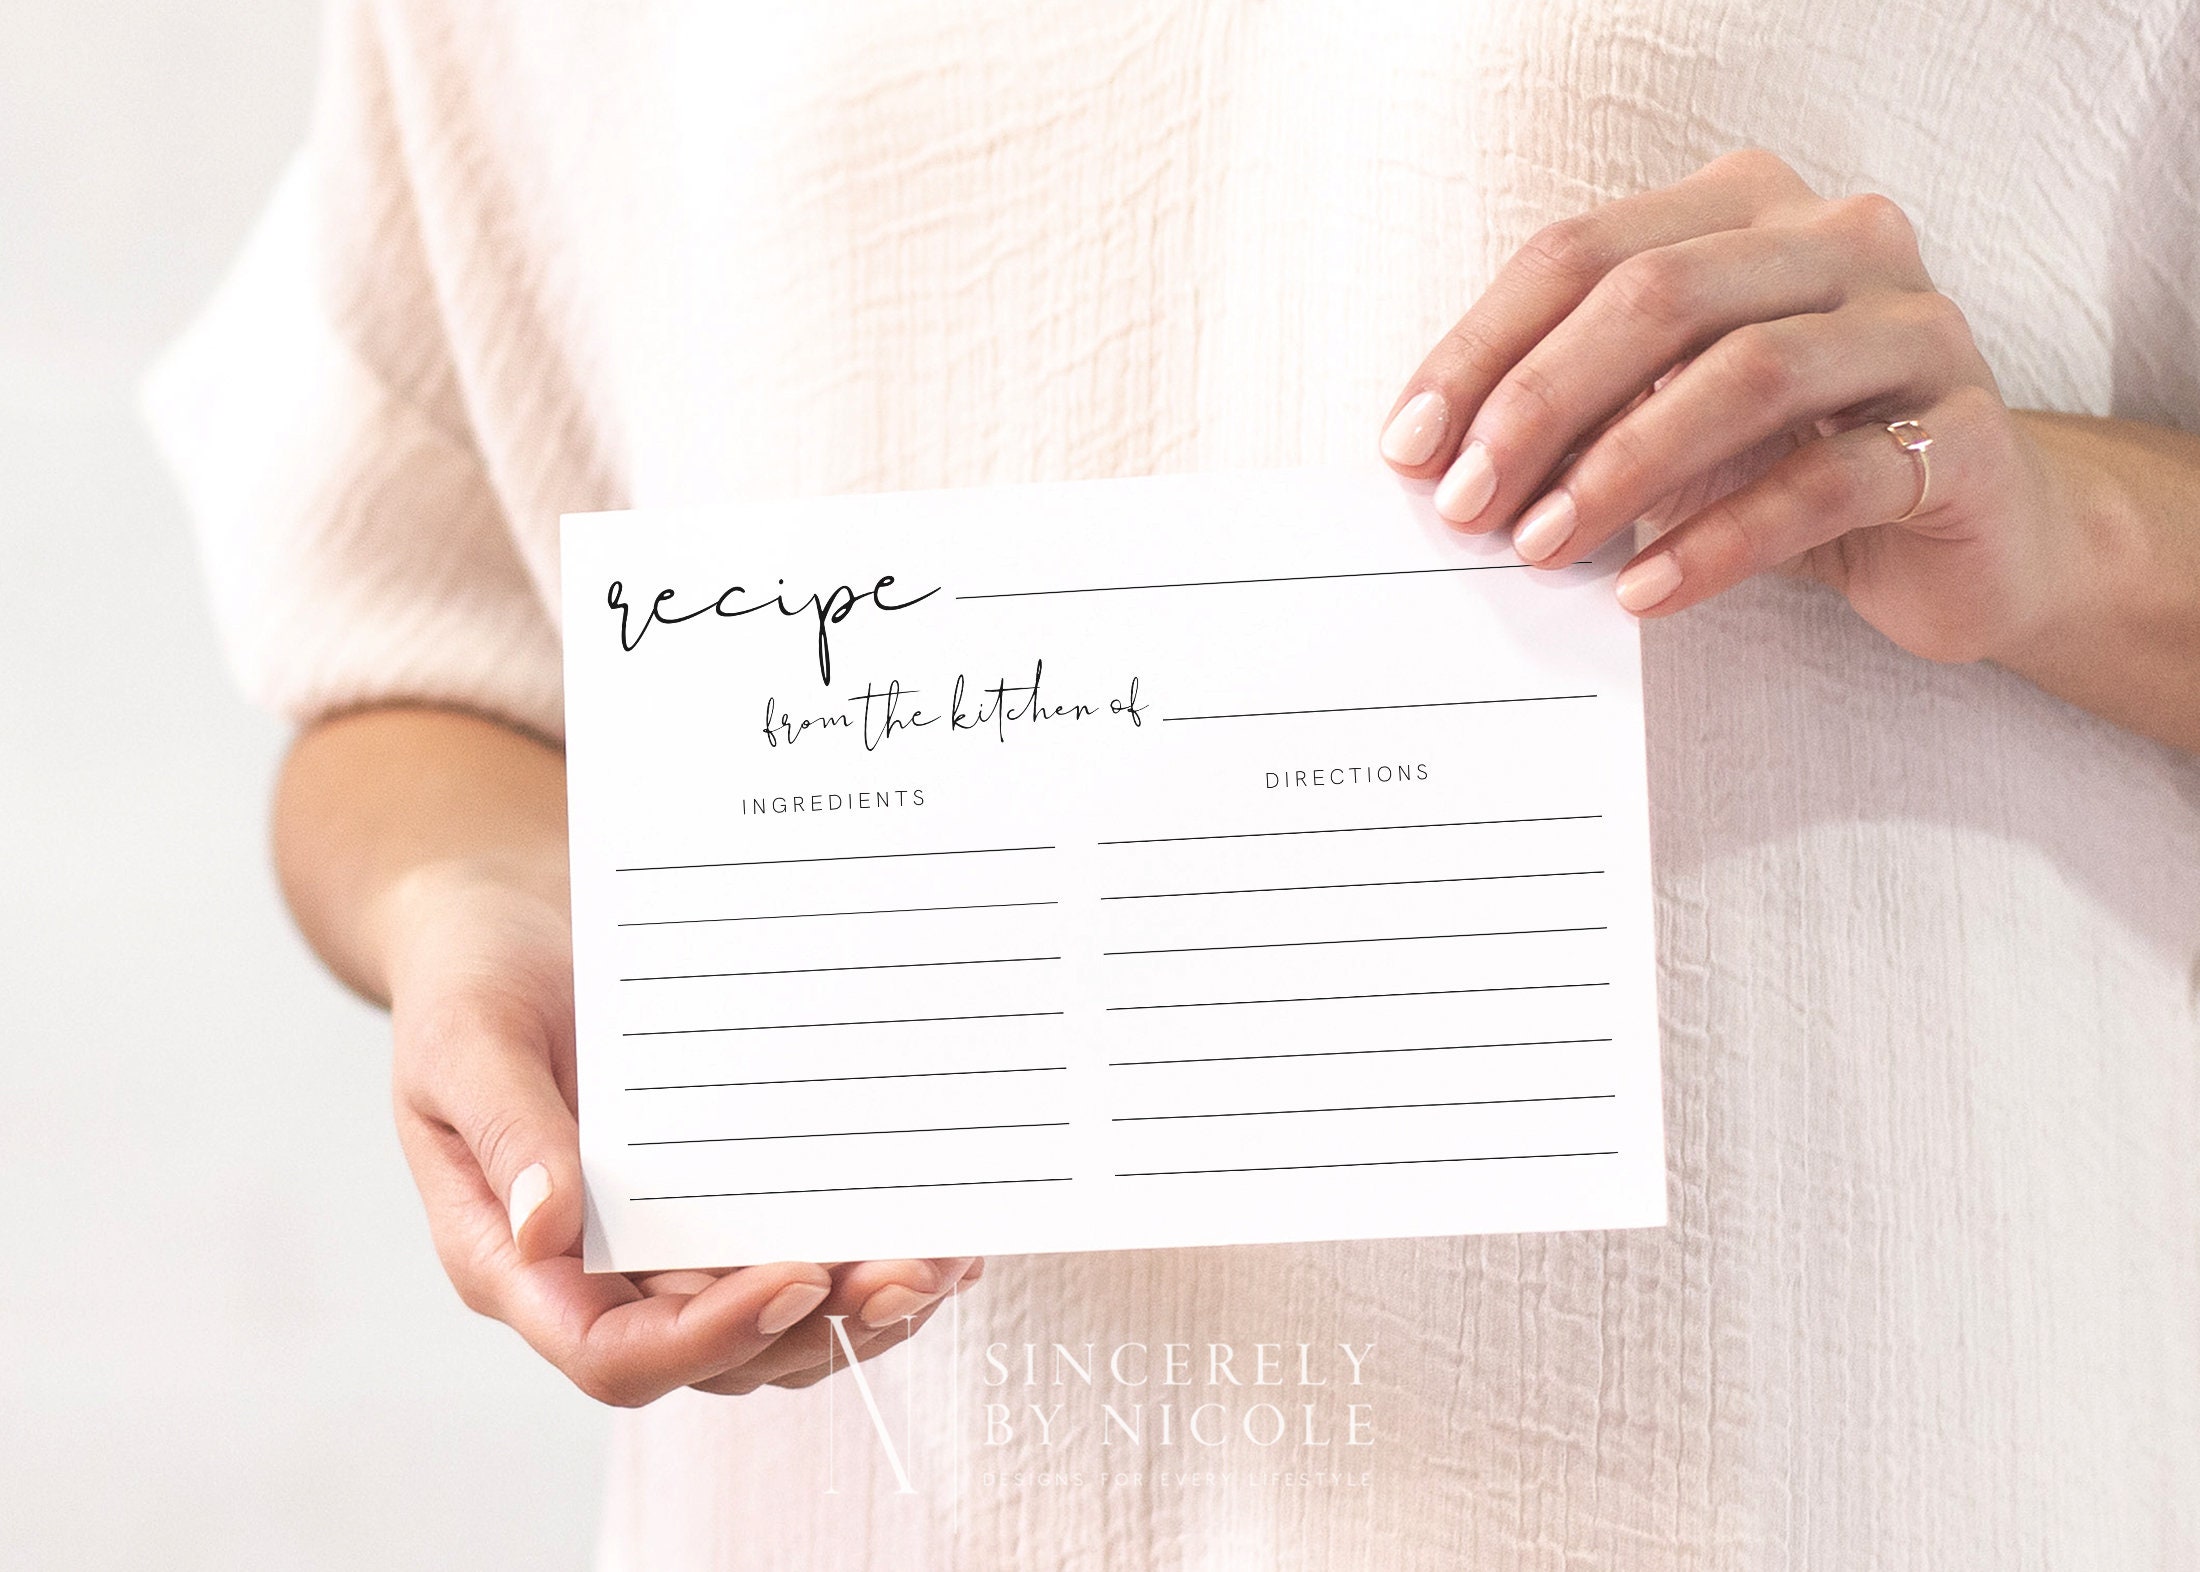 recipe
from the kitchen of
INGREDIENTS
DIRECTIONS
N
SINCERELY
BY NICOLE
DESIGNS FOR EVERY LIFESTYLE